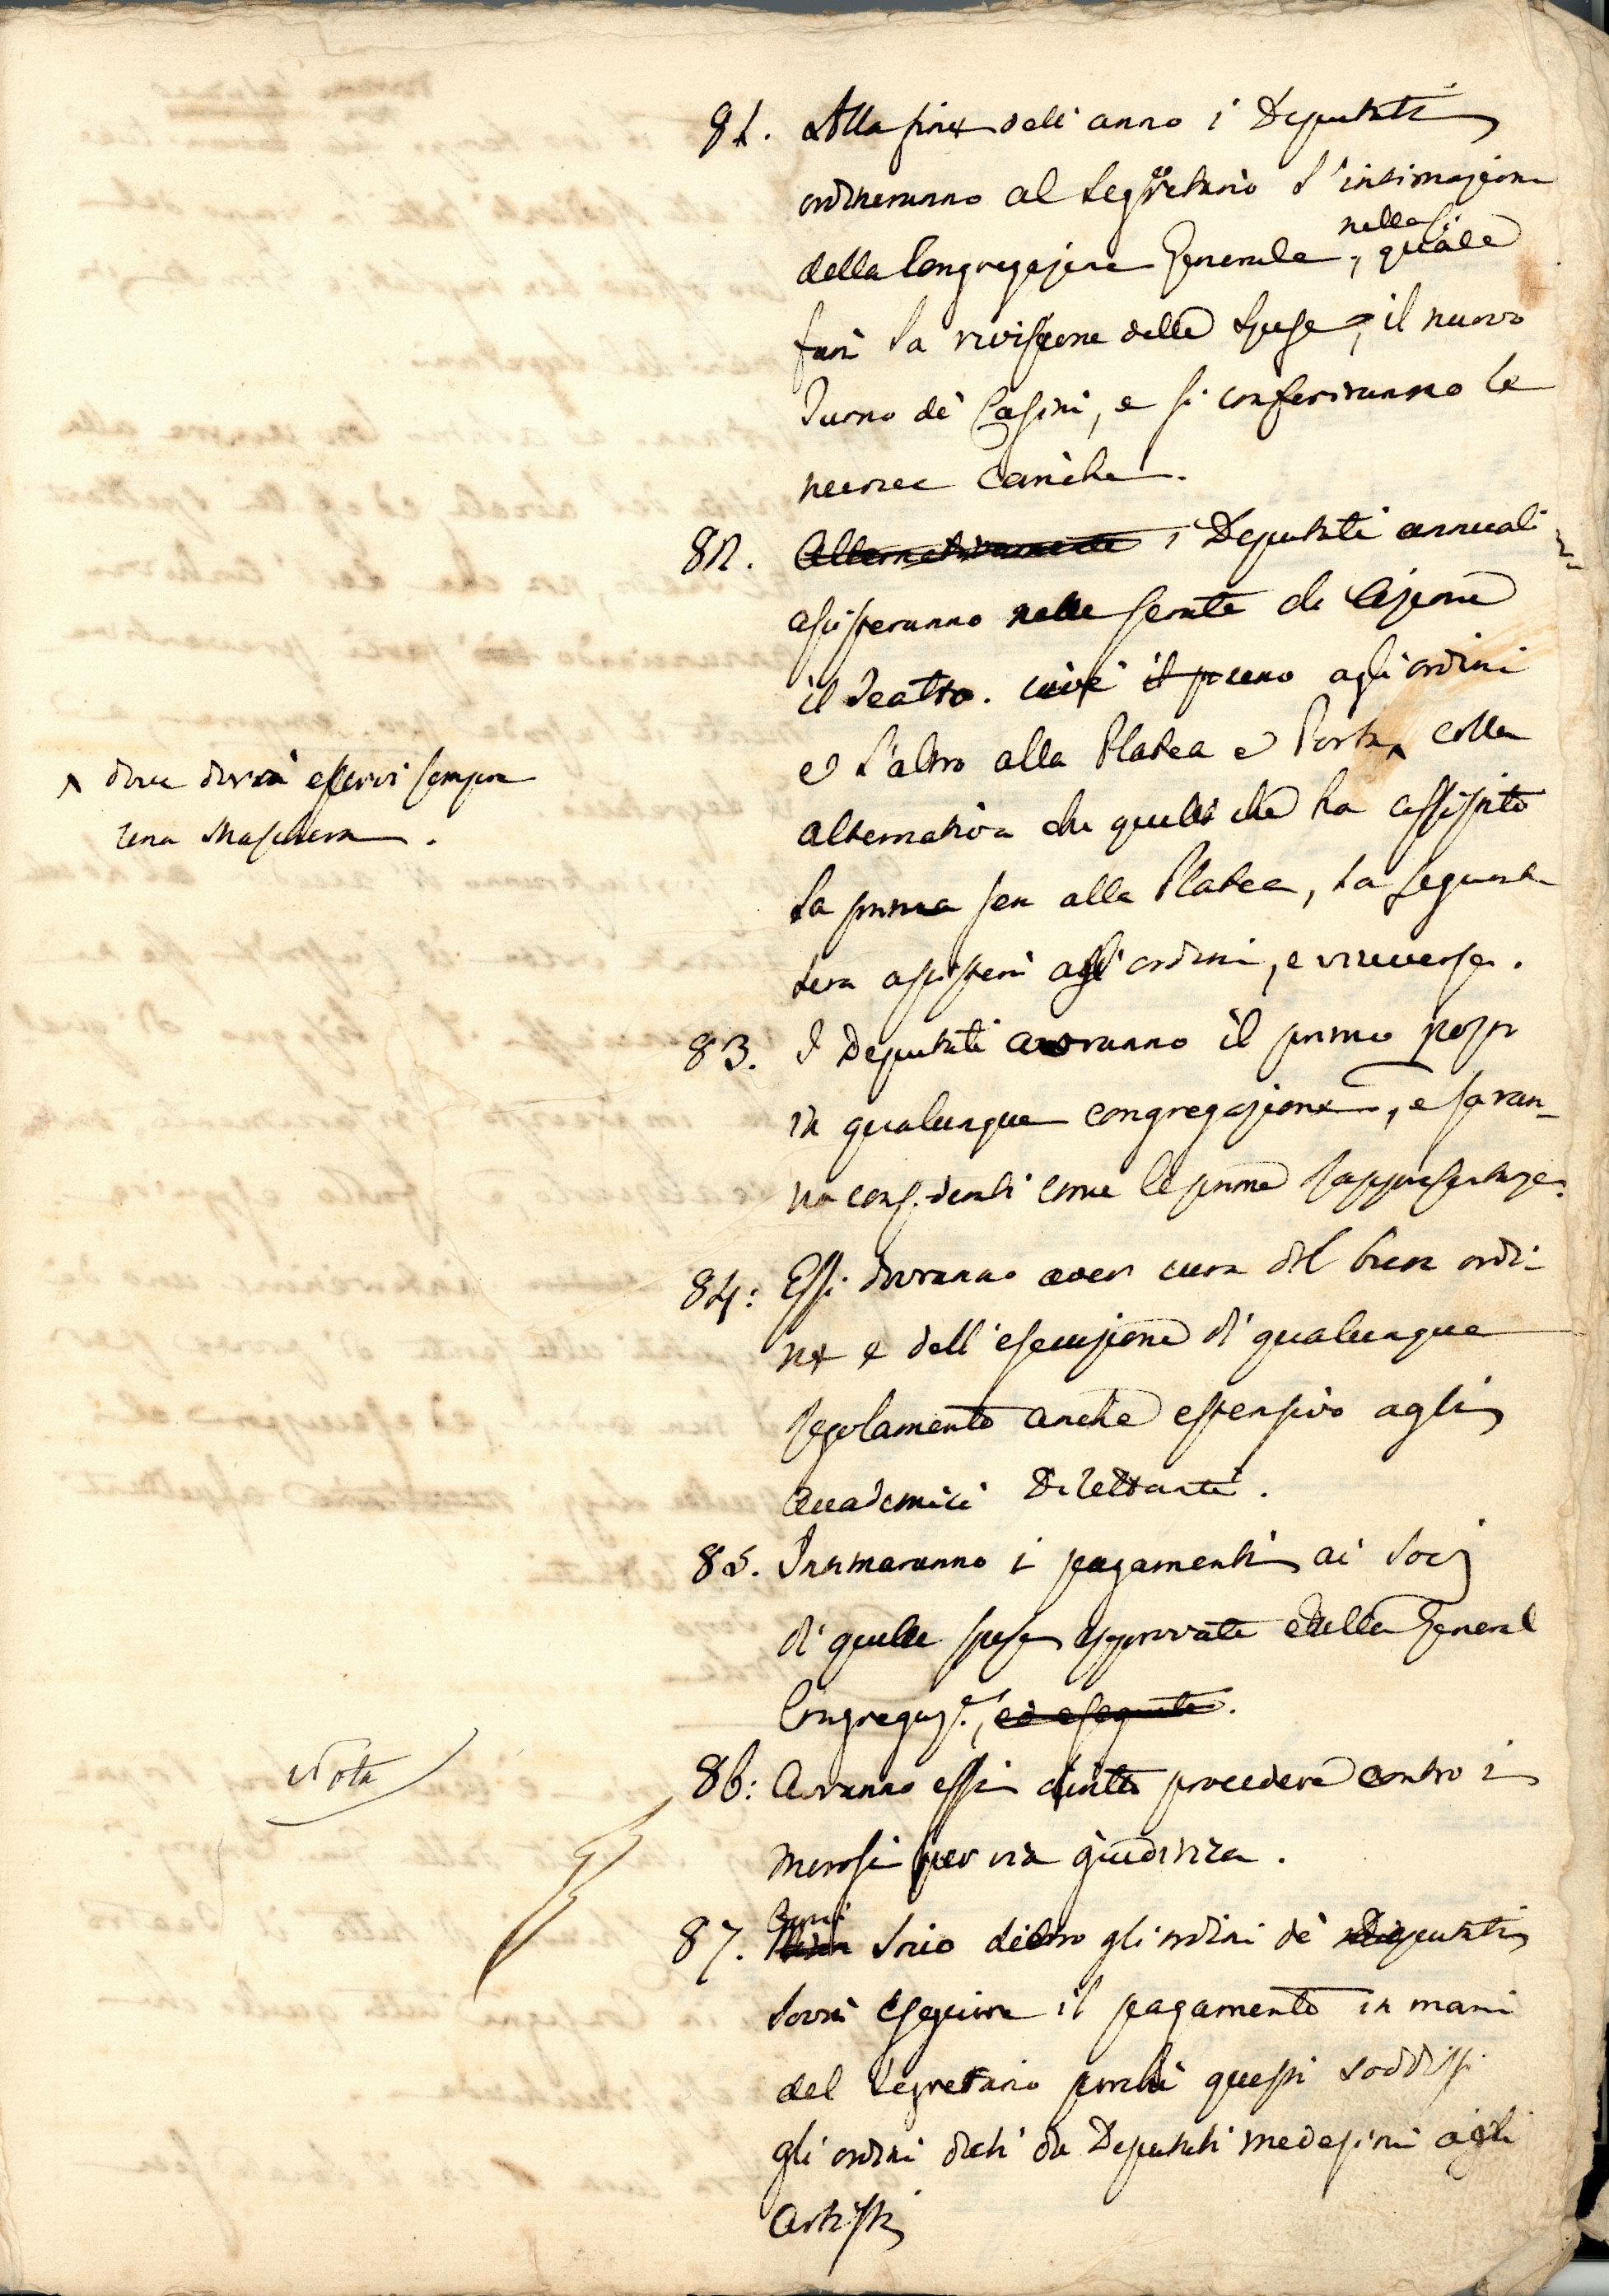 81. Alla fine dell'anno i Deputati
ordineranno al Segretario l'intimazione
della Congregazione Generale, nella quale si
farà la revisione delle Spese, il nuovo
Turno de' Casini, e si conferiranno le
nuove Cariche.
82. Alternativamente i Deputati annuali
assisteranno nelle serate di Azione
il Teatro. cioè il p uno agli ordini
e l'altro alla Platea e Porta ^ colla
^ dove dovrà esservi sempre
una Maschera.
alternativa che quello che ha assistito
la prima sera alla Platea, la seguente
sera assisterà agli ordini, e viceversa.
83. I Deputati avranno il primo posto
in qualunque congregazione, e saran-
no considerati come le prime Rappresentanze.
84: Essi dovranno aver cura del buon ordi-
ne e dell'esecuzione di qualunque
Regolamento anche estensivo agli
Accademici Dilettanti.
85. Intimeranno i pagamenti ai Socj
di quelle spese approvate della General
Congregaz.e, ed eseguite.
Nota
86: Avranno essi diritto procedere contro i
morosi per via giudiziza.
87. Ogni Socio dietro gli ordini de' Deputati
dovrà eseguire il pagamento in mani
del Segretario perché questi soddisfi
gli ordini dati da Deputati medesimi agli
Artisti